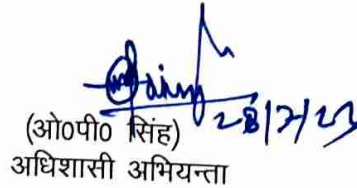 28/7/23
(ओ0पी0 सिंह)
अधिशासी अभियन्ता